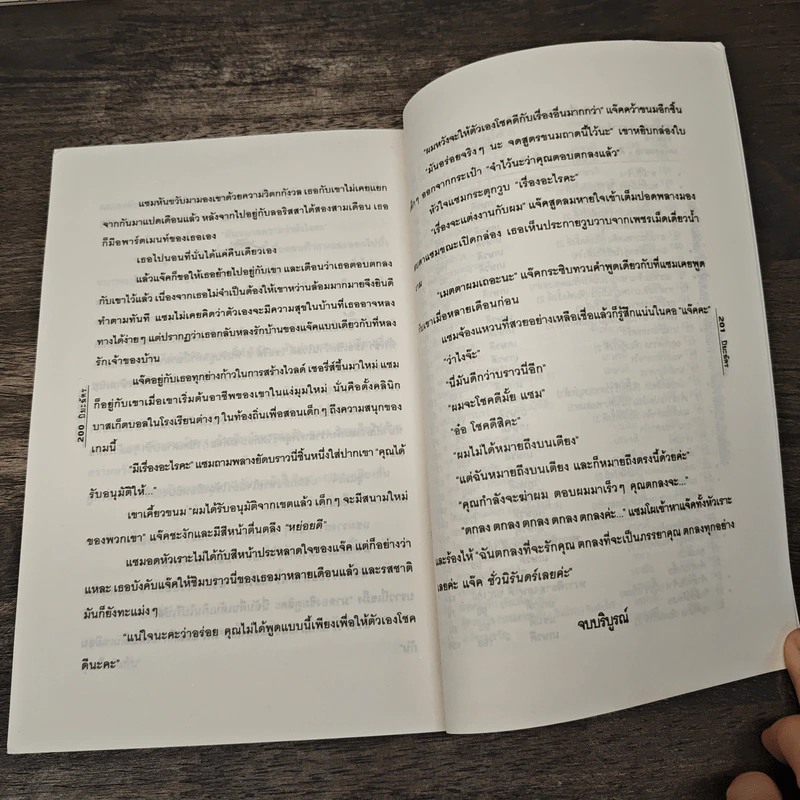 แซมหันขวับมามองเขาด้วยความวิตกกังวล เธอกับเขาไม่เคยแยก
จากกันมาแปดเดือนแล้ว หลังจากไปอยู่กับลอริสสาได้สองสามเดือน เธอ
ก็มีอพาร์ตเมนท์ของเธอเอง
เธอไปนอนที่นั่นได้แค่คืนเดียวเอง
แล้วแจ๊คก็ขอให้เธอย้ายไปอยู่กับเขา และเตือนว่าเธอตอบตกลง
กับเขาไว้แล้ว เนื่องจากเธอไม่จำเป็นต้องให้เขาหว่านล้อมมากมายจึงยินดี
ทำตามทันที แซมไม่เคยคิดว่าตัวเองจะมีความสุขในบ้านที่เธออาจหลง
ทางได้ง่ายๆ แต่ปรากฏว่าเธอกลับหลงรักบ้านของแจ๊คแบบเดียวกับที่หลง
รักเจ้าของบ้าน
แจ๊คอยู่กับเธอทุกย่างก้าวในการสร้างไวลด์ เชอรี่ส์ขึ้นมาใหม่ แซม
ก็อยู่กับเขาเมื่อเขาเริ่มต้นอาชีพของเขาในแง่มุมใหม่ นั่นคือตั้งคลินิก
บาสเก็ตบอลในโรงเรียนต่างๆ ในท้องถิ่นเพื่อสอนเด็กๆ ถึงความสนุกของ
เกมนี้
"มีเรื่องอะไรคะ" แซมถามพลางยัดบราวนี่ชิ้นหนึ่งใส่ปากเขา "คุณได้
รับอนุมัติให้..."
เขาเคี้ยวขนม "ผมได้รับอนุมัติจากเขตแล้ว เด็กๆ จะมีสนามใหม่
ของพวกเขา" แจ๊คชะงักและมีสีหน้าตื่นตะลึง "หย่อยดี"
แซมอดหัวเราะไม่ได้กับสีหน้าประหลาดใจของแจ๊ค แต่ก็อย่างว่า
แหละ เธอบังคับแจ๊คให้ชิมบราวนี่ของเธอมาหลายเดือนแล้ว และรสชาติ
มันก็ยังทะแม่งๆ
"แน่ใจนะคะว่าอร่อย คุณไม่ได้พูดแบบนี้เพียงเพื่อให้ตัวเองโชค
ดีนะคะ"
200
"ผมหวังจะให้ตัวเองโชคดีกับเรื่องอื่นมากกว่า" แจ๊คคว้าขนมอีกชิ้น
"มันอร่อยจริงๆ นะ จดสูตรขนมถาดนี้ไว้นะ" เขาหยิบกล่องใบ
ๆ ออกจากกระเป๋า "จำไว้นะว่าคุณตอบตกลงแล้ว"
หัวใจแซมกระตุกวูบ "เรื่องอะไรคะ"
"เรื่องจะแต่งงานกับผม" แจ๊คสูดลมหายใจเข้าเต็มปอดพลางมอง
ตาแซมขณะเปิดกล่อง เธอเห็นประกายวูบวาบจากเพชรเม็ดเดี่ยวน้ำ
"เมตตาผมเถอะนะ" แจ๊คกระซิบทวนคำพูดเดียวกับที่แซมเคยพูด
กับเขาเมื่อหลายเดือนก่อน
แซมจ้องแหวนที่สวยอย่างเหลือเชื่อแล้วก็รู้สึกแน่นในคอ "แจ๊คคะ"
"ว่าไงจ๊ะ"
"นี่มันดีกว่าบราวนี่อีก"
"ผมจะโชคดีมั้ย แซม"
"อ๋อ โชคดีสิคะ"
"ผมไม่ได้หมายถึงบนเตียง"
"แต่ฉันหมายถึงบนเตียง และก็หมายถึงตรงนี้ด้วยค่ะ"
"คุณกำลังจะฆ่าผม ตอบผมมาเร็วๆ คุณตกลงจะ..."
"ตกลง ตกลง ตกลง ตกลง ตกลงค่ะ..." แซมโผเข้าหาแจ๊คทั้งหัวเราะ
และร้องไห้ "ฉันตกลงที่จะรักคุณ ตกลงที่จะเป็นภรรยาคุณ ตกลงทุกอย่าง
เลยค่ะ แจ๊ค ชั่วนิรันดร์เลยค่ะ"
จบบริบูรณ์
201